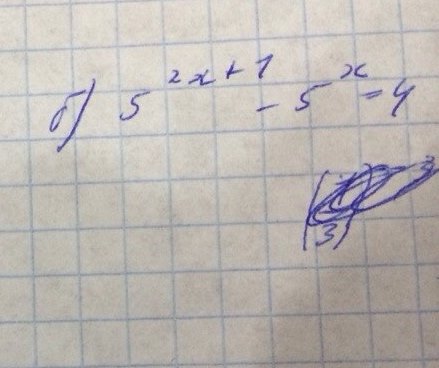 б) 5^{2x+1} - 5^x = 4
(3)